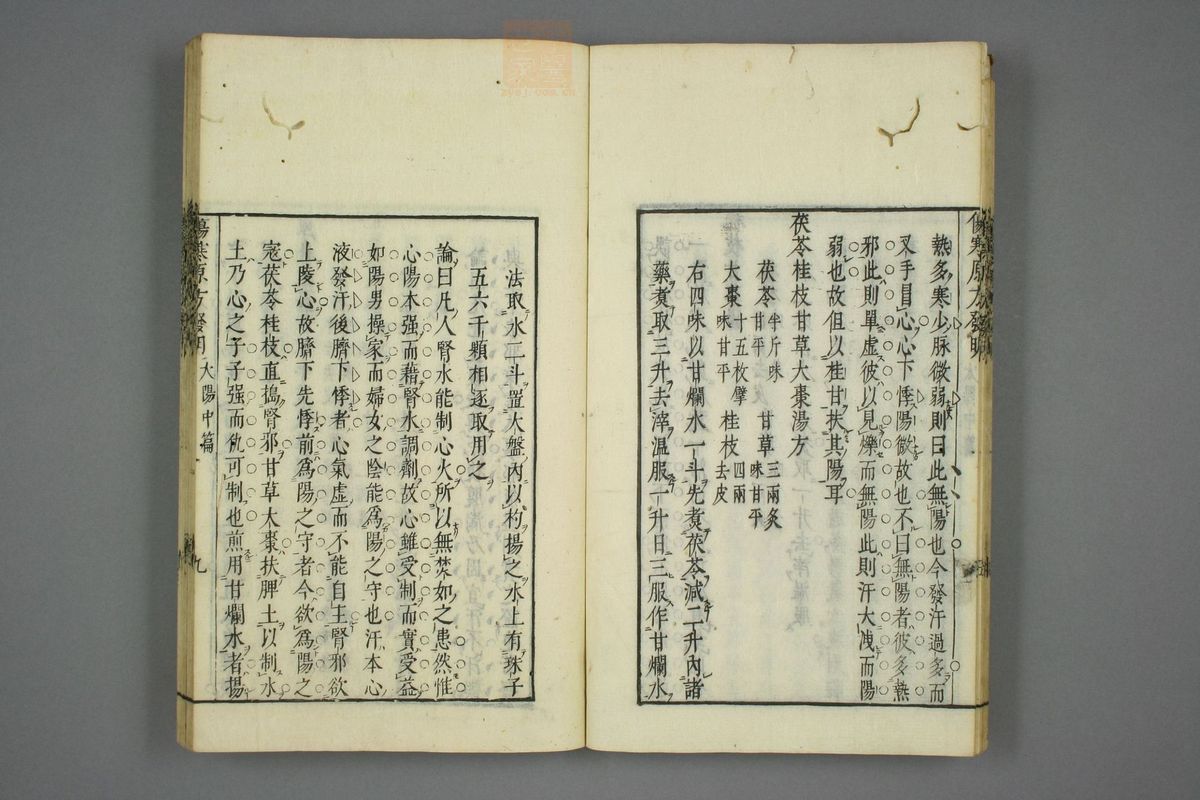 熱多寒少脉微弱則曰此無陽也今發汗過多而
叉手冒心心下悸陽微故也不曰無陽者彼多熱
邪此則單虛彼以見爍而無陽此則汗大洩而陽
弱也故但以桂甘扶其陽耳
茯苓桂枝甘草大棗湯方
茯苓半斤味甘平 甘草三兩炙味甘平
大棗十五枚擘味甘平 桂枝四兩去皮
右四味以甘爛水一斗先煮茯苓減二升內諸
藥煮取三升去滓溫服一升日三服作甘爛水
法取水二斗置大盤內以杓揚之水上有珠子
五六千顆相逐取用之
論曰凡人腎水能制心火所以無焚如之患然惟
心陽本强而藉腎水調劑故心雖受制而實受益
如陽男操家而婦女之陰能爲陽之守也汗本心
液發汗後臍下悸者心氣虛而不能自王腎邪欲
上陵心故臍下先悸前爲陽之守者今欲爲陽之
寇茯苓桂枝直搗腎邪甘草大棗扶脾土以制水
土乃心之子子强而仇可制也煎用甘爛水者揚
傷寒原方發明 太陽中篇 九
zysj.com.cn